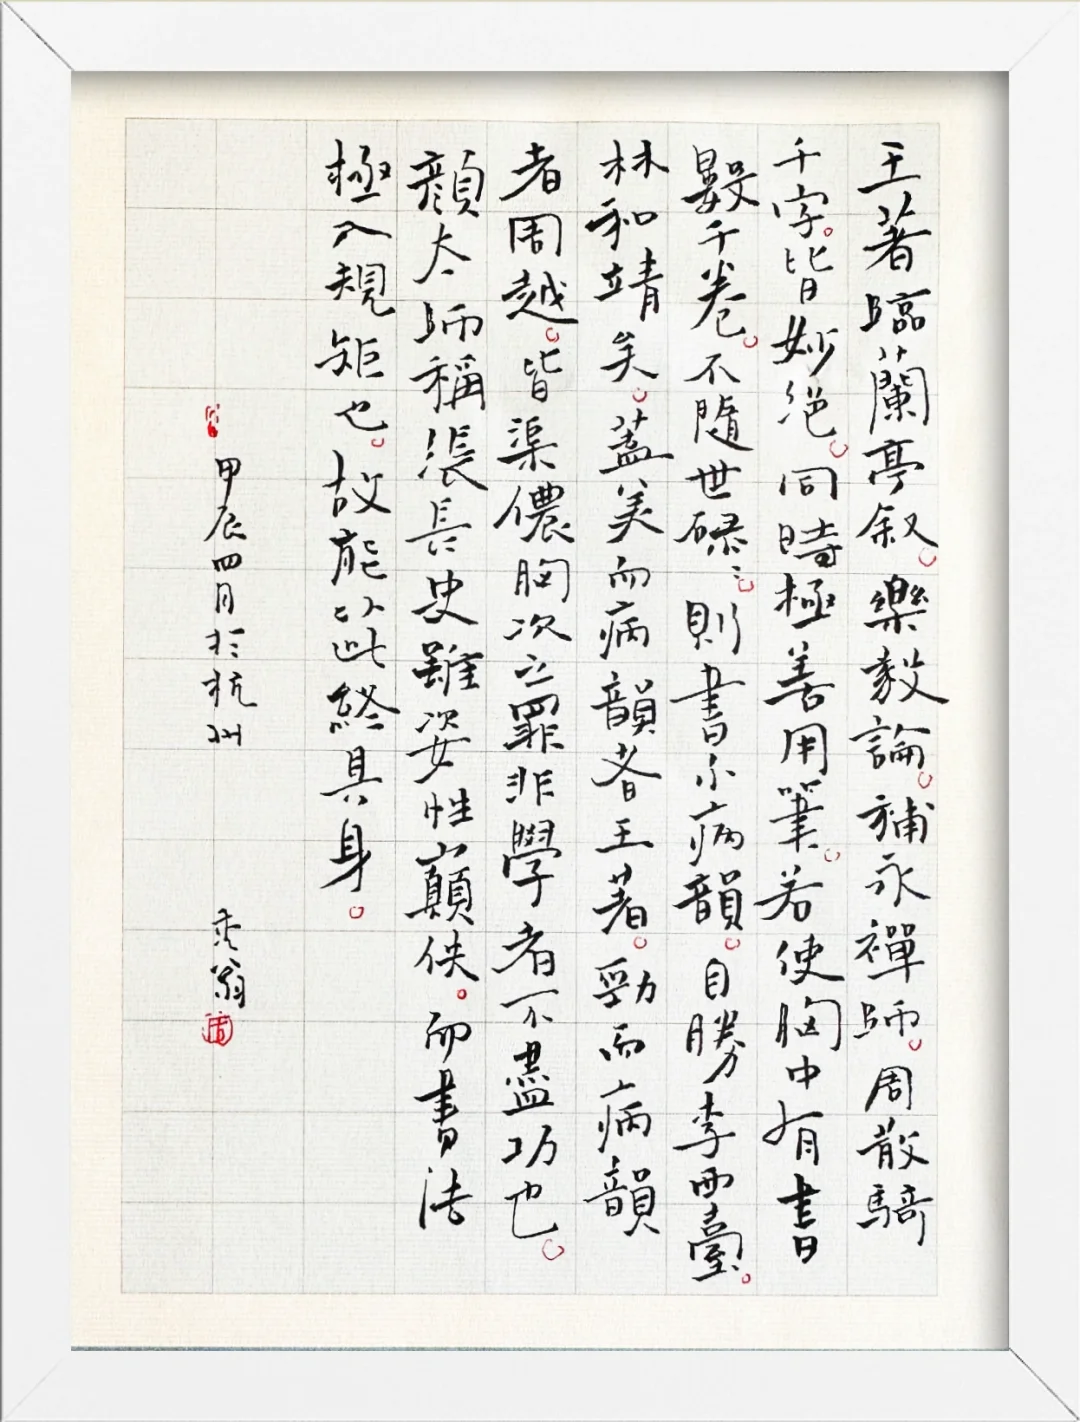 王著臨蘭亭叙。樂毅論。補永禪師。周散騎
千字。皆妙絕。同時極善用筆。若使胸中有書
數千卷。不隨世碌々。則書不病韻。自勝李西臺。
林和靖矣。蓋美而病韻者王著。勁而病韻
者周越。皆渠儂胸次之罪非學者不盡功也。
顏太師稱張長史雖姿性顛佚。而書法
極入規矩也。故能以此終其身。
甲辰四月於杭州
翁